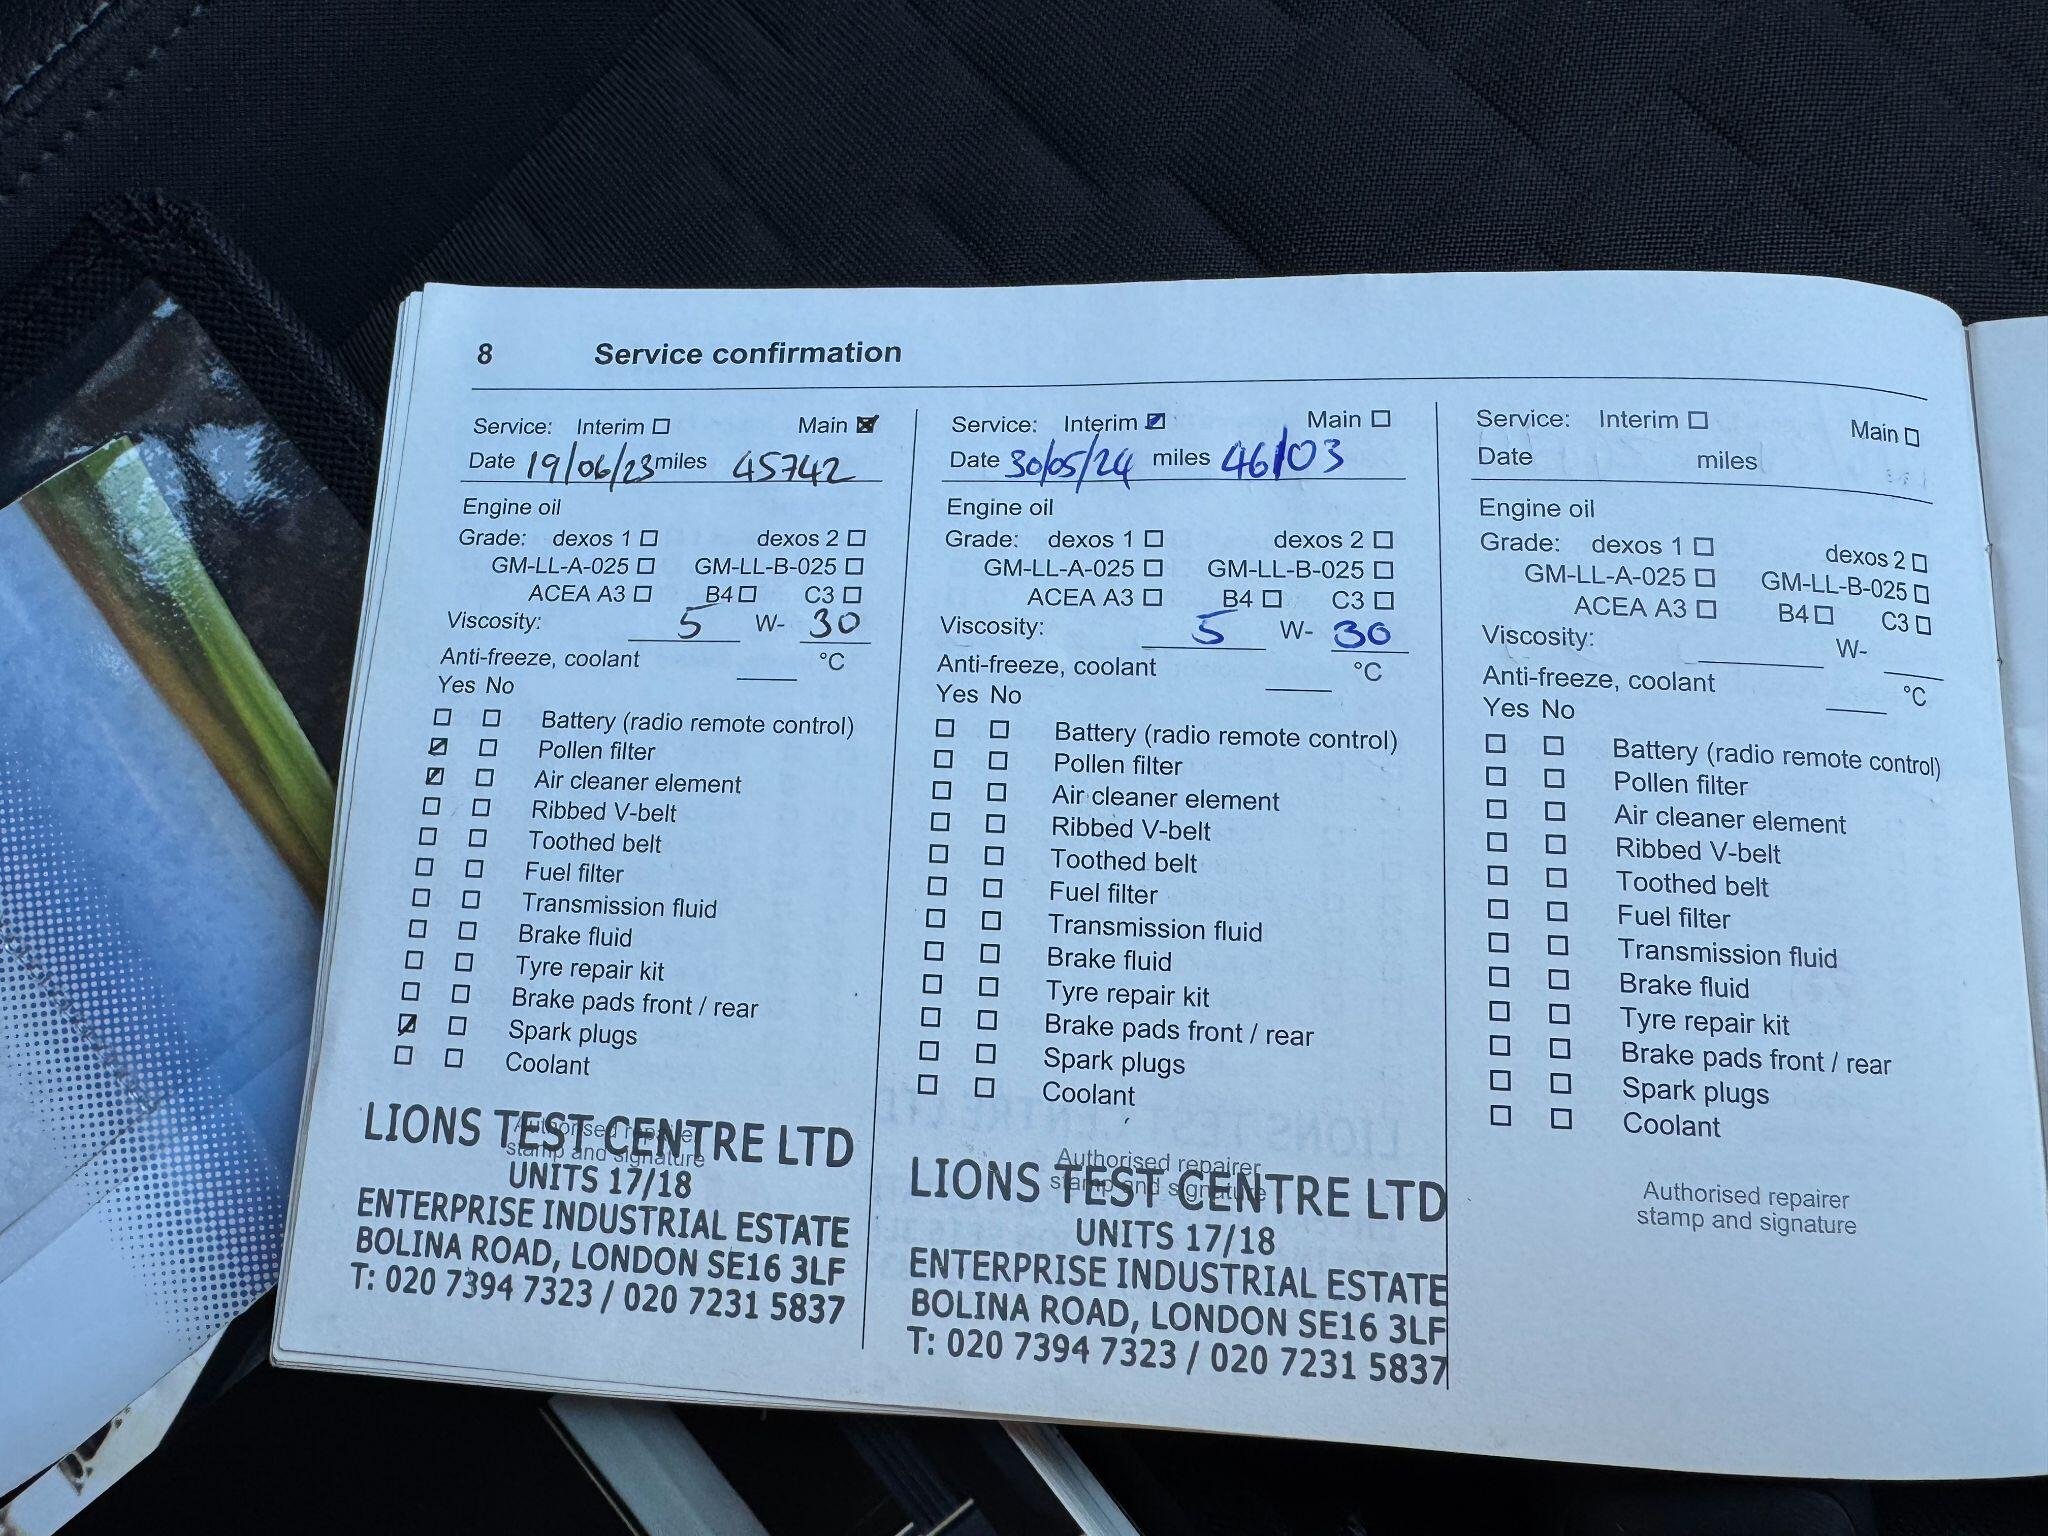 8 Service confirmation
Service: Interim Main
Date 19/06/23 miles 45742
Engine oil
Grade: dexos 1 dexos 2
GM-LL-A-025 GM-LL-B-025
ACEA A3 B4 C3
Viscosity: 5 W- 30
Anti-freeze, coolant °C
Yes No
Battery (radio remote control)
Pollen filter
Air cleaner element
Ribbed V-belt
Toothed belt
Fuel filter
Transmission fluid
Brake fluid
Tyre repair kit
Brake pads front / rear
Spark plugs
Coolant
Authorised repairer
stamp and signature
LIONS TEST CENTRE LTD
UNITS 17/18
ENTERPRISE INDUSTRIAL ESTATE
BOLINA ROAD, LONDON SE16 3LF
T: 020 7394 7323 / 020 7231 5837
Service: Interim Main
Date 30/05/24 miles 46103
Engine oil
Grade: dexos 1 dexos 2
GM-LL-A-025 GM-LL-B-025
ACEA A3 B4 C3
Viscosity: 5 W- 30
Anti-freeze, coolant °C
Yes No
Battery (radio remote control)
Pollen filter
Air cleaner element
Ribbed V-belt
Toothed belt
Fuel filter
Transmission fluid
Brake fluid
Tyre repair kit
Brake pads front / rear
Spark plugs
Coolant
Authorised repairer
stamp and signature
LIONS TEST CENTRE LTD
UNITS 17/18
ENTERPRISE INDUSTRIAL ESTATE
BOLINA ROAD, LONDON SE16 3LF
T: 020 7394 7323 / 020 7231 5837
Service: Interim Main
Date miles
Engine oil
Grade: dexos 1 dexos 2
GM-LL-A-025 GM-LL-B-025
ACEA A3 B4 C3
Viscosity: W-
Anti-freeze, coolant °C
Yes No
Battery (radio remote control)
Pollen filter
Air cleaner element
Ribbed V-belt
Toothed belt
Fuel filter
Transmission fluid
Brake fluid
Tyre repair kit
Brake pads front / rear
Spark plugs
Coolant
Authorised repairer
stamp and signature